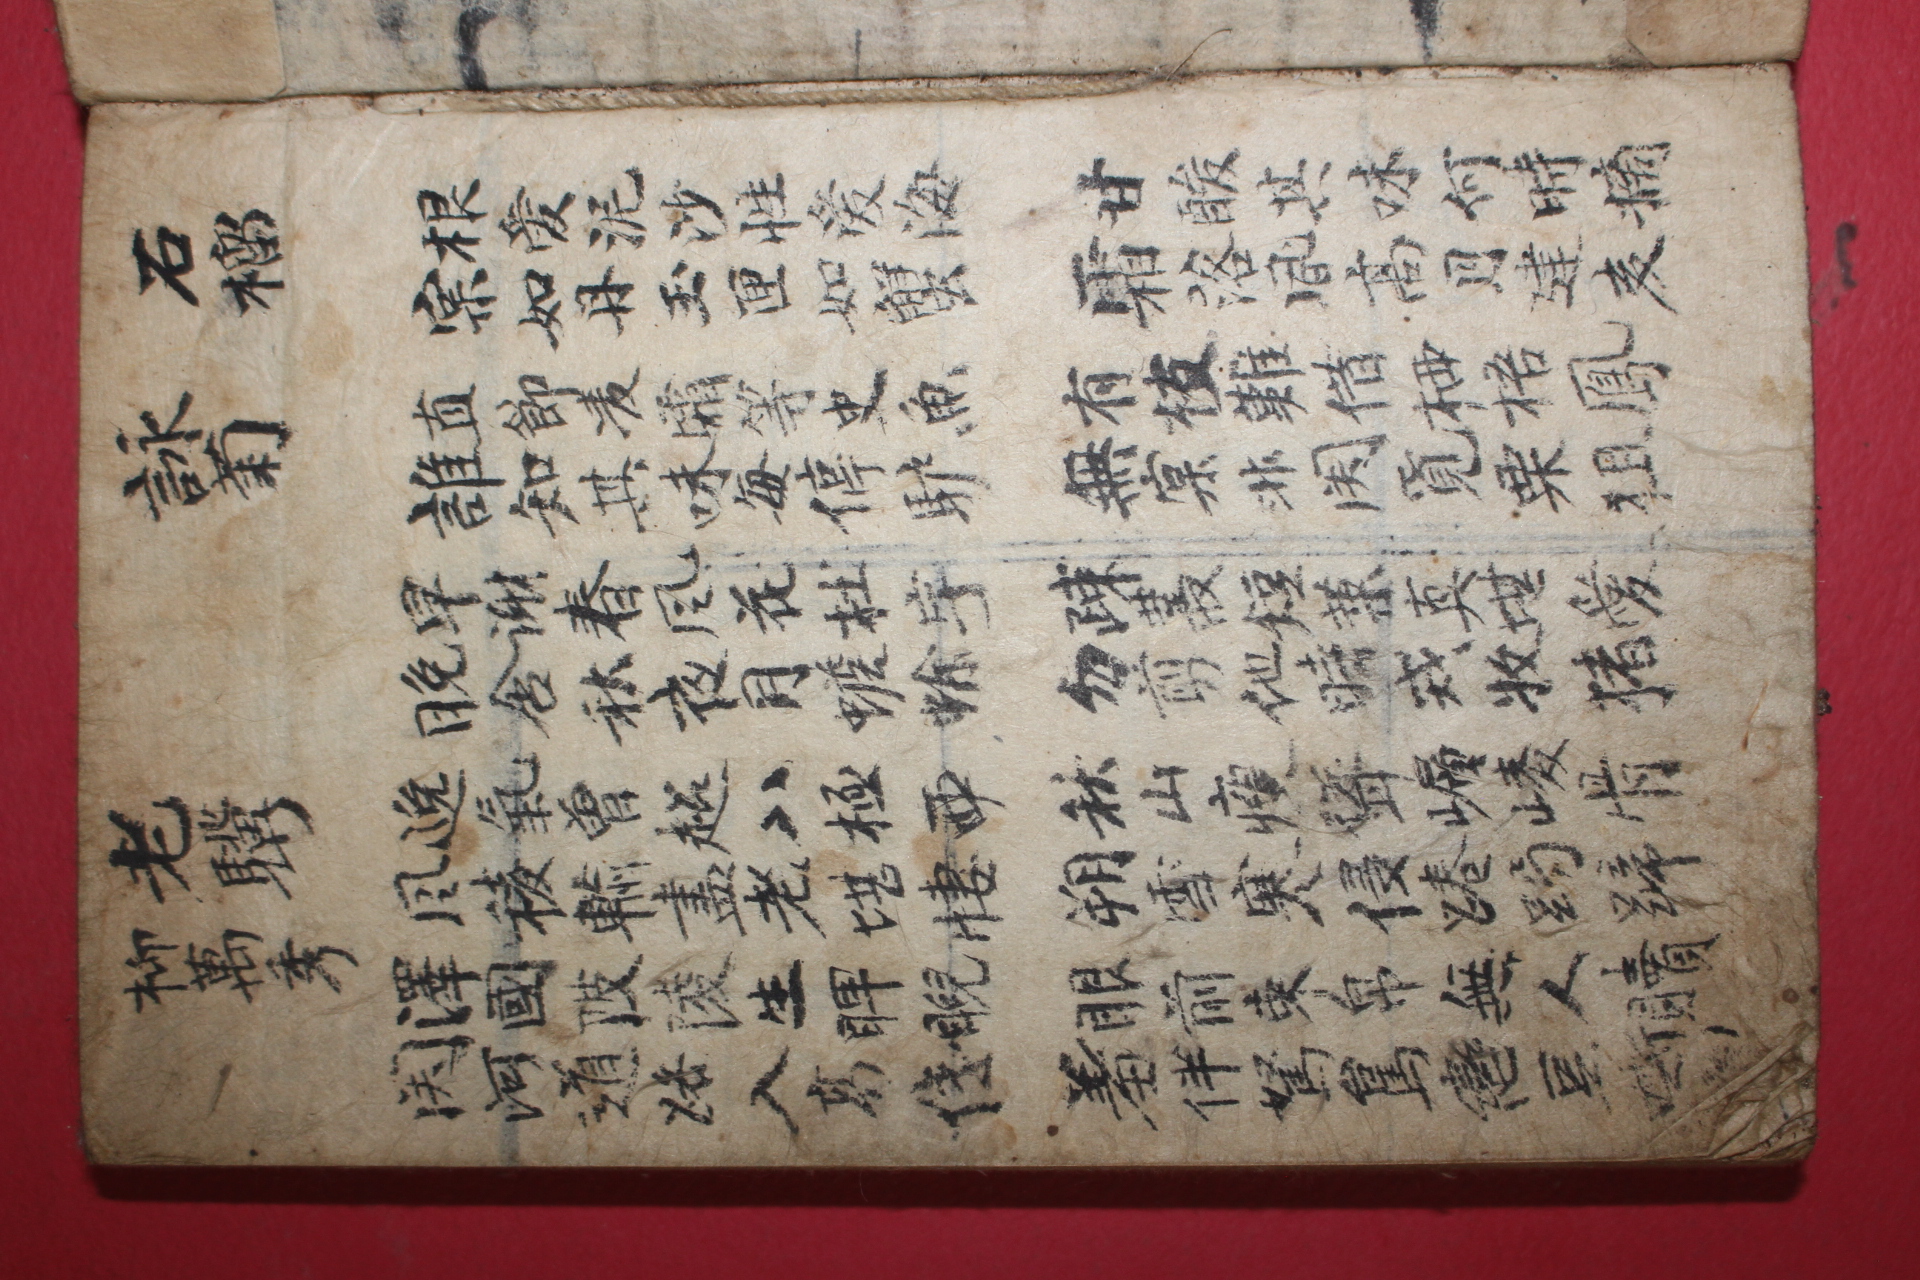 石榴
根愛泥沙性愛海 甘酸其味何時摘
宲如丹玉匣如蟹 霜落風高月建亥
詠菊
直節凌霜等史魚 有枝難借栖梧鳳
誰知其味每停馿 無宲非関覓栗狙
早謝春風花杜宇 疎叢短葉真堪愛
晩含秋夜月蟾蜍 勿剪他時戒牧猪
老驥
柳萬秀
逸氣曾超八極西 秋山瘦聳巑崚骨
風稜輸盡老堪悽 朔雪寒侵踡跼蹄
澤國陂陵生睥睨 眼前束帛無人贖
関河道路入高低 羞伴駑駘戀豆